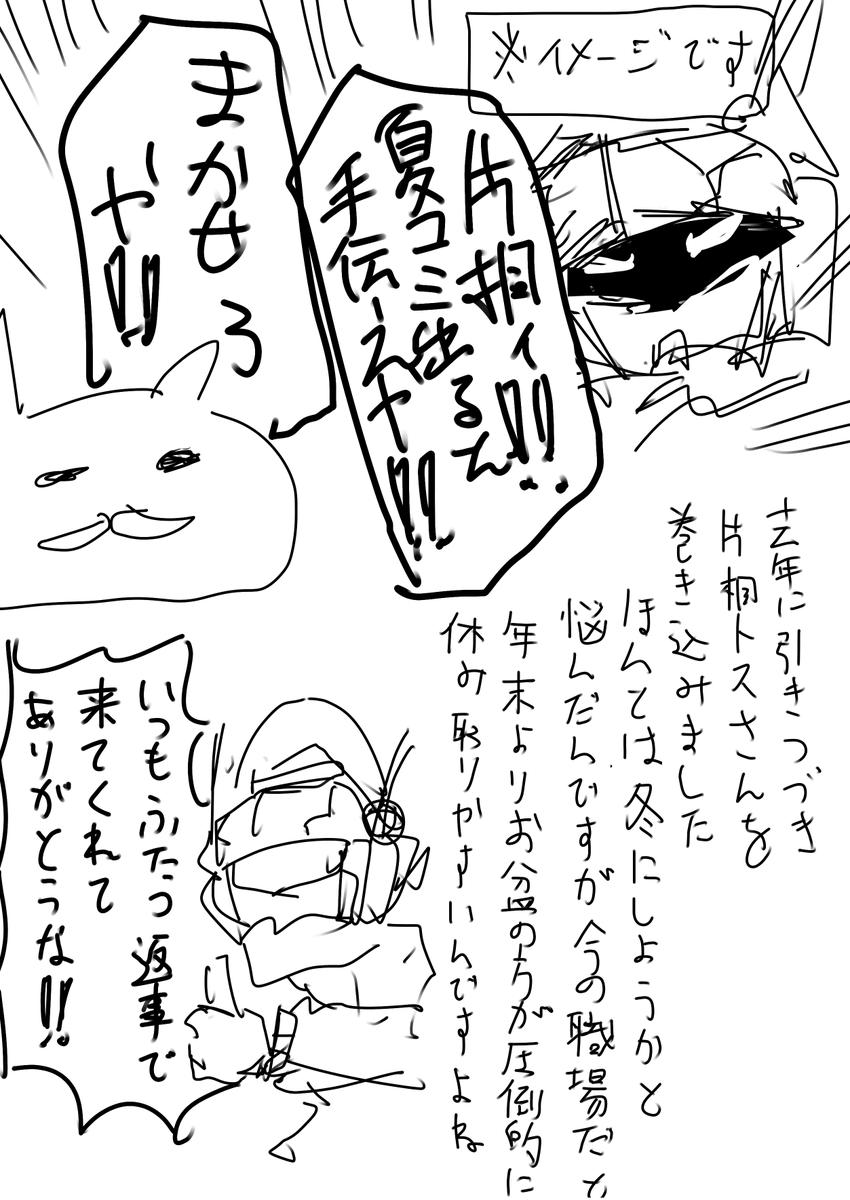 ※イメージです
片桐ィ!!
夏コミ出るん
手伝えや!!
まかせろ
や!!
去年に引きつづき
片桐トスさんを
巻き込みました
ほんとは冬にしようかと
悩んだんですが今の職場だと
年末よりお盆の方が圧倒的に
休み取りやすいんですよね
いつもふたつ返事で
来てくれて
ありがとうな!!